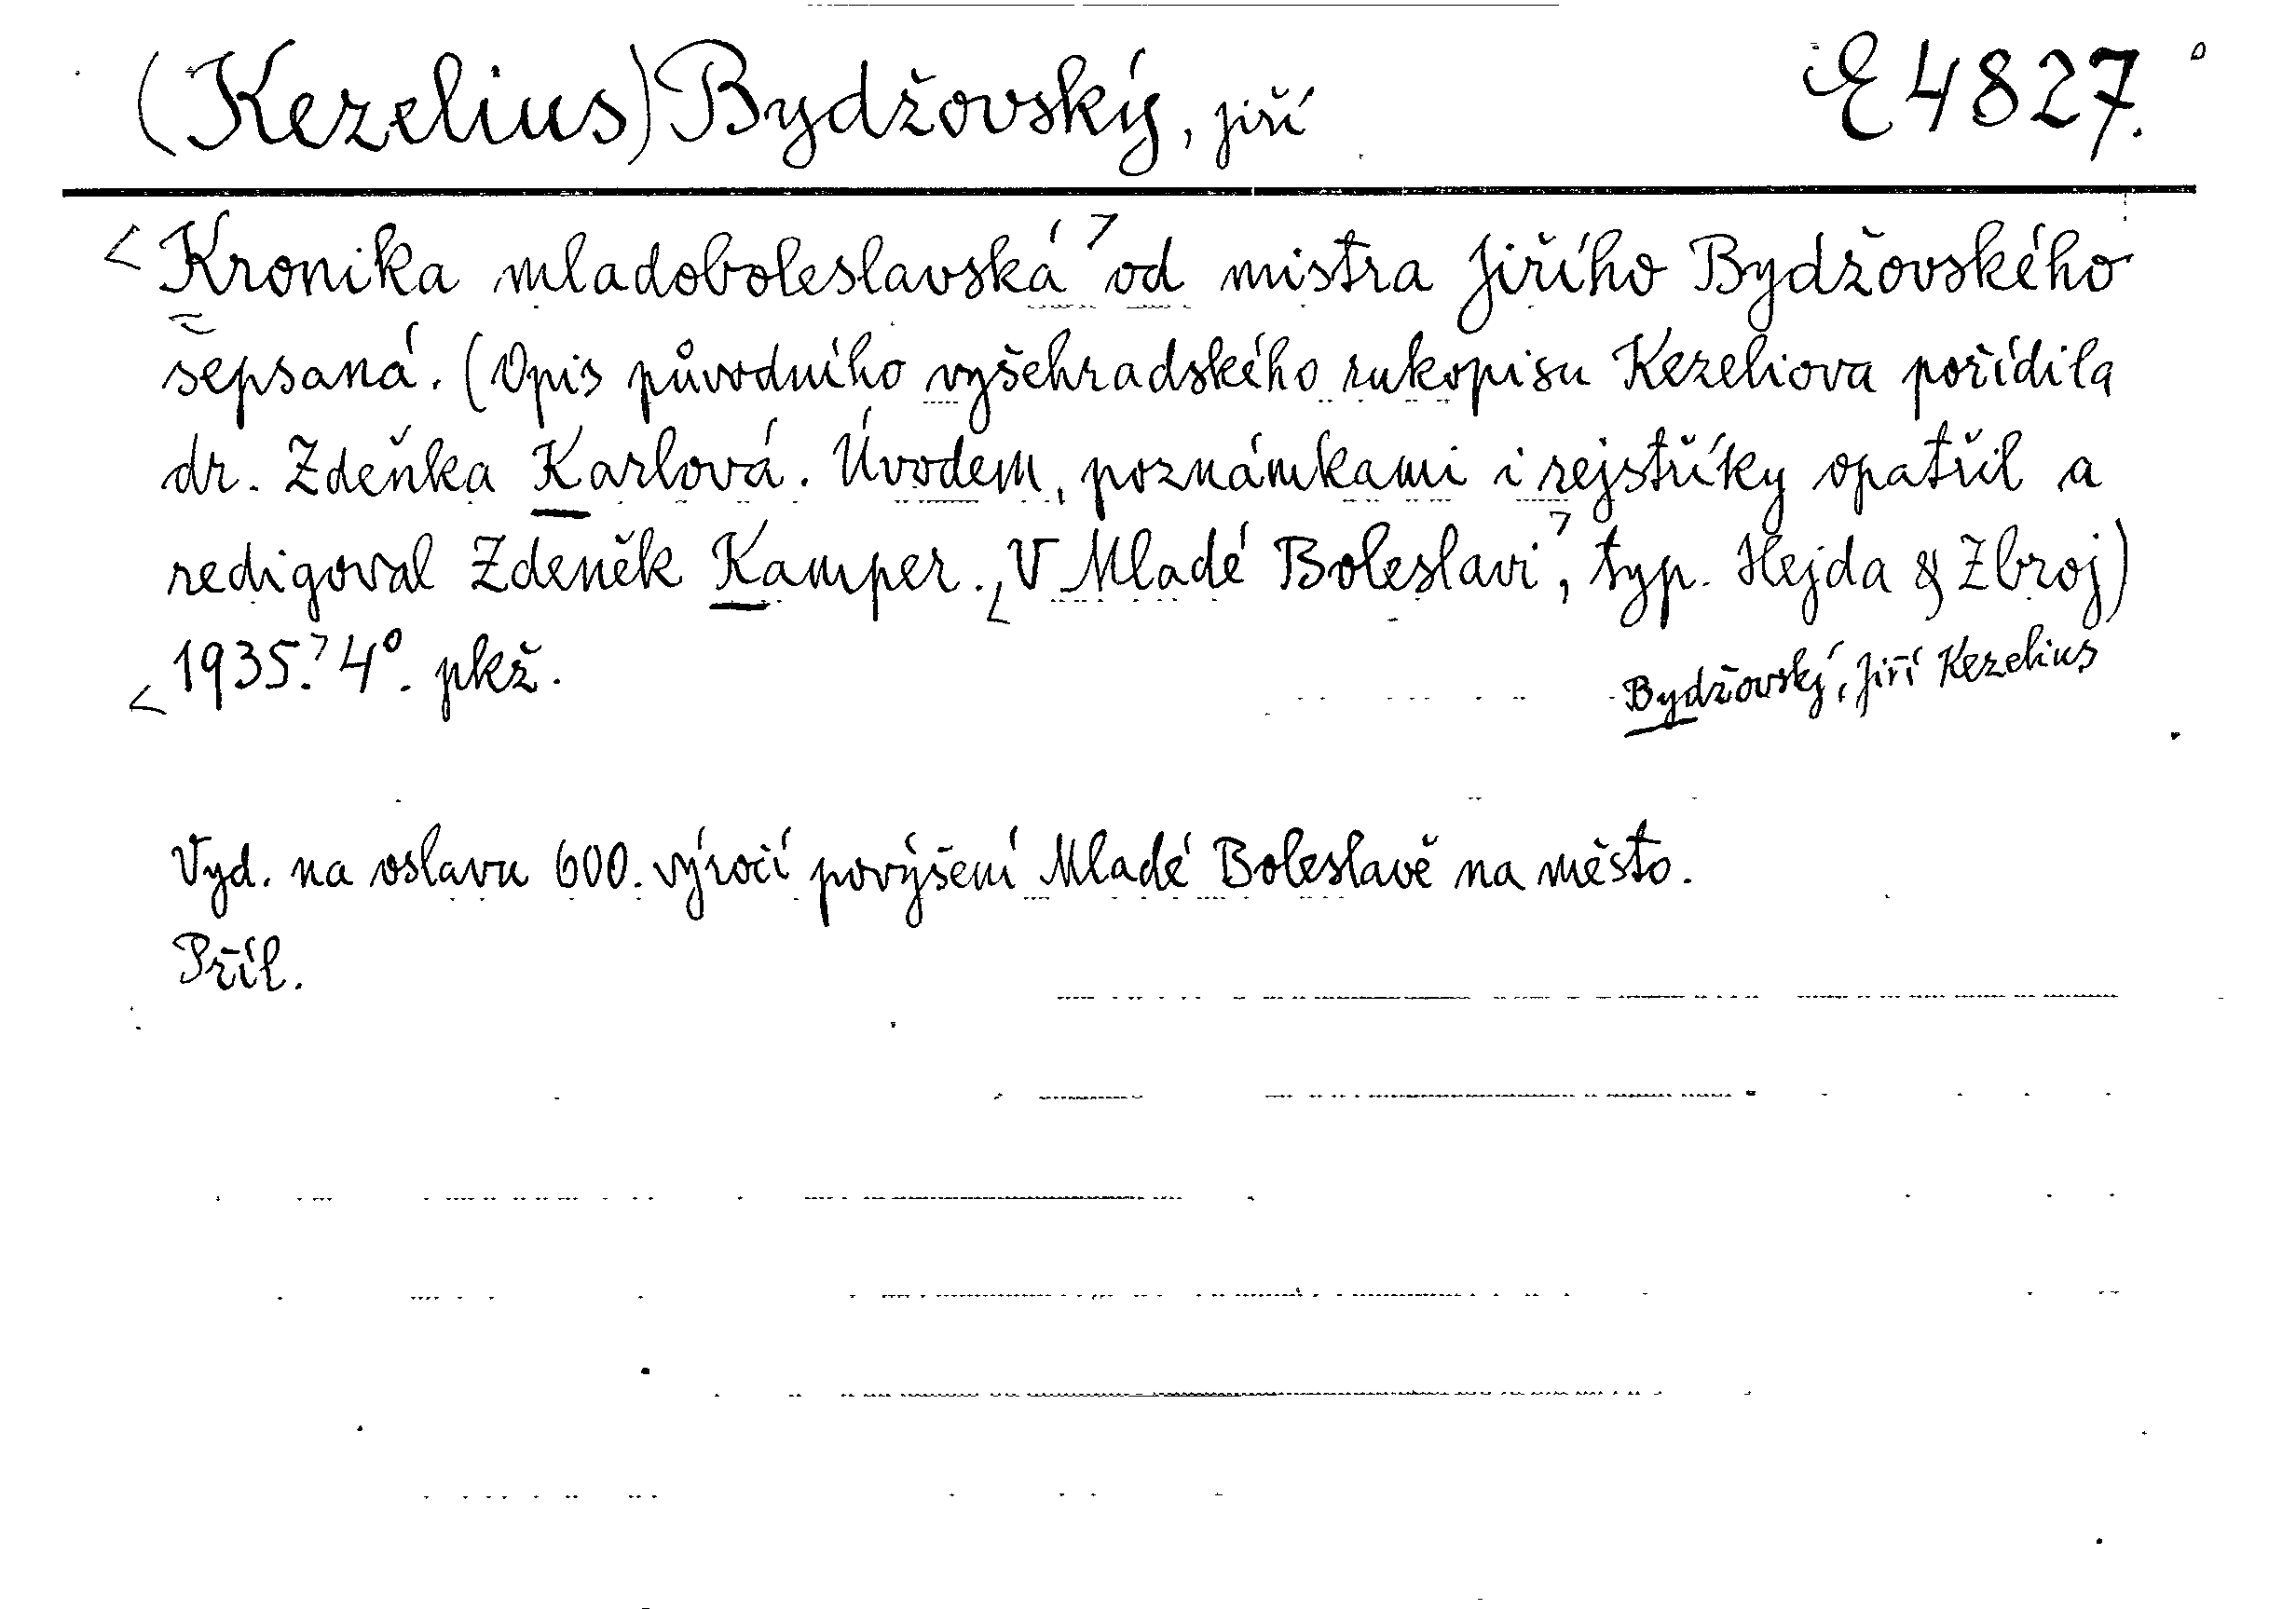 (Kezelius) Bydžovský, Jiří E 4827.
<Kronika mladoboleslavská> od mistra Jiřího Bydžovského
sepsaná. (Opis původního vyšehradského rukopisu Kezeliova pořídila
dr. Zdeňka Karlová. Úvodem, poznámkami i rejstříky opatřil a
redigoval Zdeněk Kamper. <V Mladé Boleslavi>, typ. Hejda & Zbroj)
<1935.> 4°. pkž.
Bydžovský, Jiří Kezelius
Vyd. na oslavu 600. výročí povýšení Mladé Boleslavě na město.
Příl.